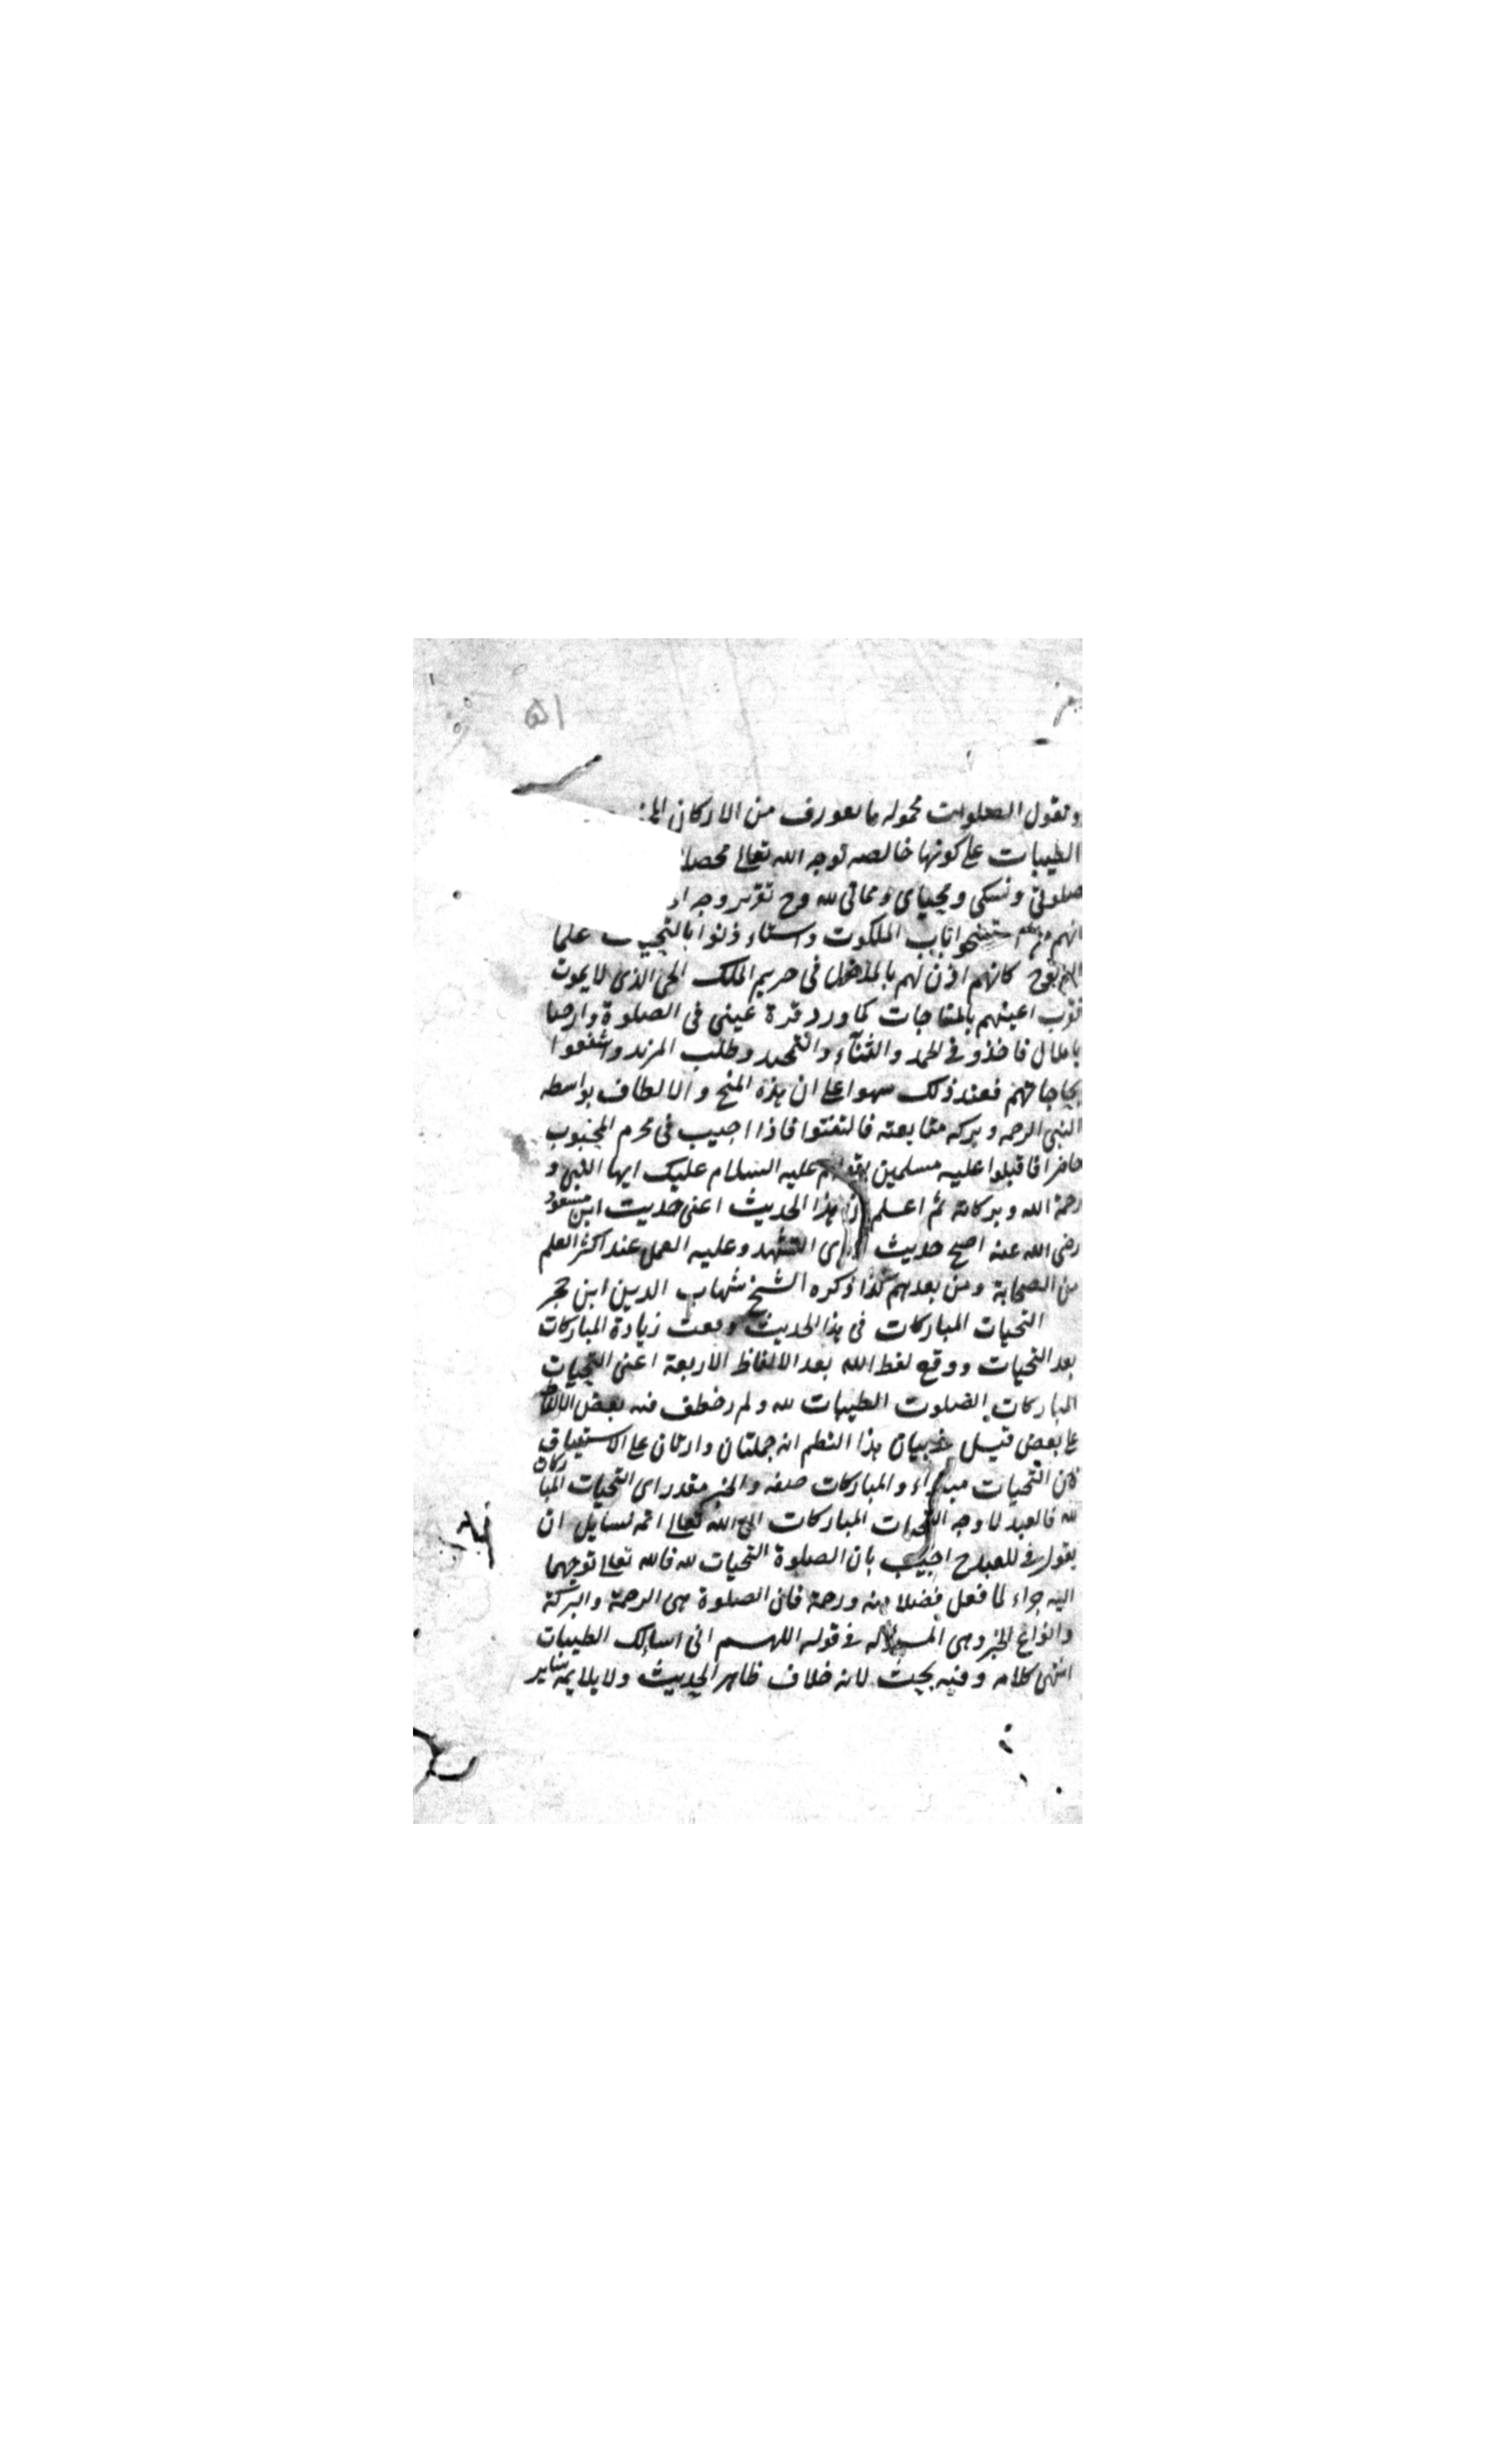 ٥١
ونقول الصلوات محموله ما تعورف من الاركان
الطيبات على كونها خالصه لوجه الله تعالى محصل
صلوتى ونسكى ومحياى ومماتى لله وح تقرير وجه
انهم باب الملكوت واستاءذنوا بالتحيات علما
كانهم اذن لهم بالدخول فى حريم الملك الحى الذى لا يموت
اعينهم بالمناجات كما ورد قرة عينى فى الصلوة وارحنا
يا بلال فاخذو فى الحمد والثناء والتمجيد وطلب المزيد واشفعوا
بحاجاتهم فعند ذلك على ان هذه المنح والالطاف بواسطه
النبى الرحمه وبركه متابعته فالتفتوا فاذا اجيب فى محرم المحبوب
حاضرا فاقبلوا عليه مسلمين بقولهم عليه السلام عليك ايها النبى و
رحمة الله وبركاته ثم اعلم ان هذا الحديث اعنى حديث ابن مسعود
رضى الله عنه اصح حديث روى التشهد وعليه العمل عند اكثر العلم
من الصحابة ومن بعدهم كذا ذكره الشيخ شهاب الدين ابن حجر
التحيات المباركات فى هذا الحديث وقعت زيادة المباركات
بعد التحيات ووقع لفظ الله بعد الالفاظ الاربعة اعنى التحيات
المباركات الصلوت الطيبات لله ولم يعطف فيه بعض الالفاظ
على بعض قيل فى بيان هذا النظم انه جملتان واردتان على الاستيناف
فان التحيات مبتداء والمباركات صفه والخبر مقدر اى التحيات المباركات
لله فالعبد لما وجه التحيات المباركات الى الله تعالى اتجه لسايل ان
يقول فى للعبد ح اجيب بان الصلوة التحيات لله فالله تعالى توجهها
اليه جزاء لما فعل فضلا منه ورحمة فان الصلوة هى الرحمة والبركة
وانواع الخير وهى المسولاله فى قوله اللهم انى اسالك الطيبات
انتهى كلامه وفيه بحث لانه خلاف ظاهر الحديث ولا يلايمه